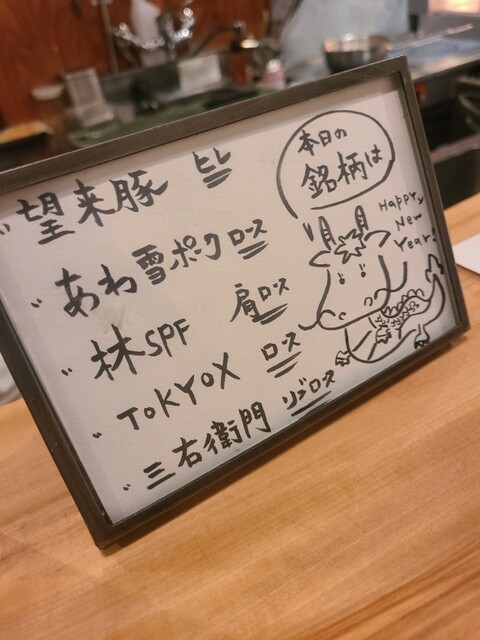 本日の
銘柄は
望来豚 ヒレ
あわ雪ポーク ロース
林SPF 肩ロース
TOKYOX ロース
三右衛門 リブロース
Happy
New
Year!